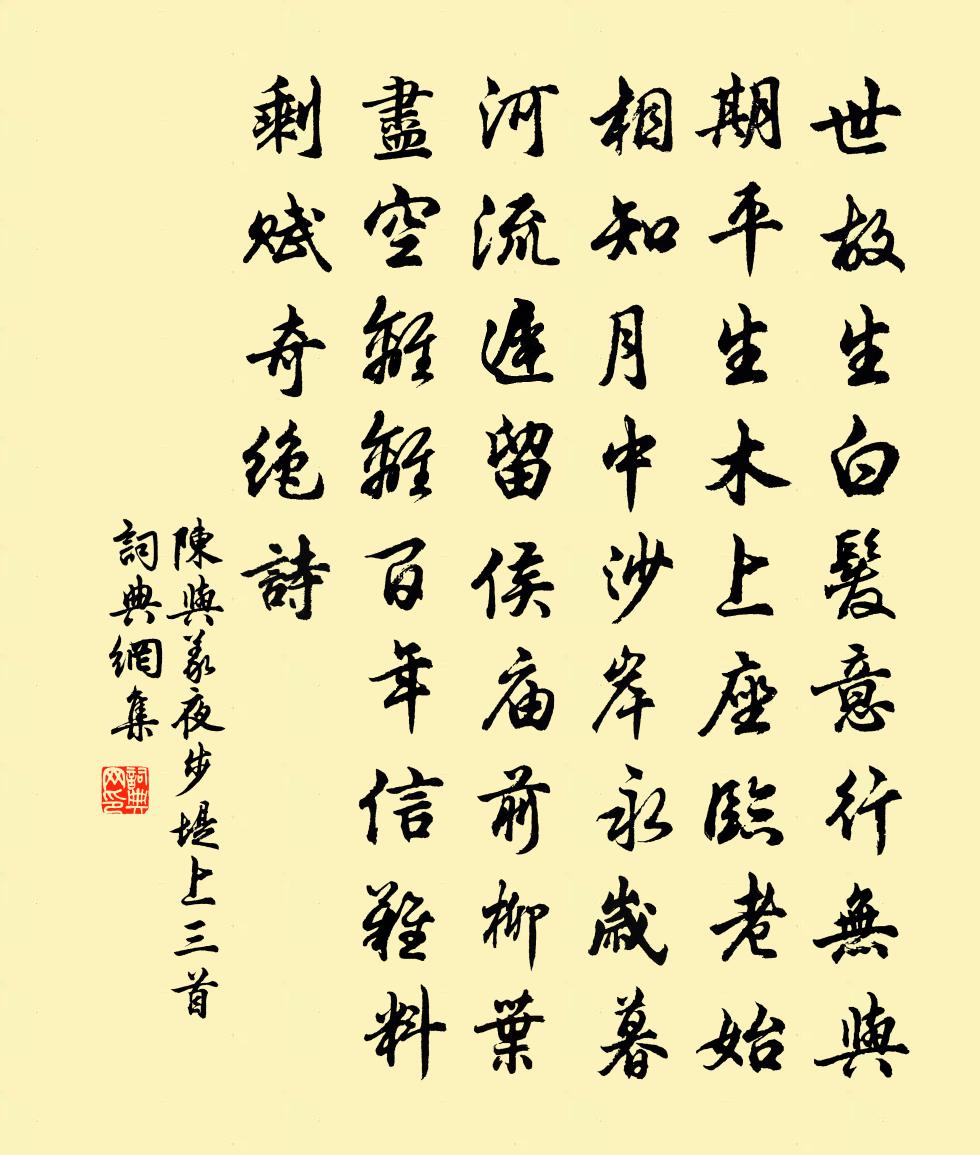 世故生白髮意行無與
期平生木上座臨老始
相知月中沙岸永歲暮
河流遲留侯庙前柳葉
盡空離離百年信難料
剩賦奇絶詩
陳與義夜步堤上三首
詞典網集
詞典网印